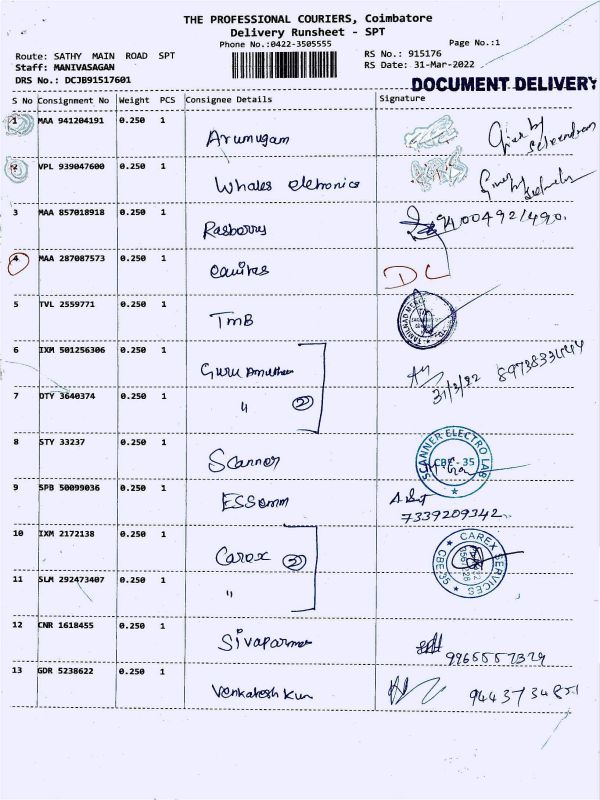 THE PROFESSIONAL COURIERS, Coimbatore
Delivery Runsheet - SPT
Phone No.:0422-3505555
Page No.:1
Route: SATHY MAIN ROAD SPT
RS No.: 915176
Staff: MANIVASAGAN
RS Date: 31-Mar-2022
DRS No.: DCJB91517601
DOCUMENT DELIVERY
S No Consignment No Weight PCS Consignee Details Signature
1 MAA 941204191 0.250 1 Arumugam Given by
2 VPL 939047600 0.250 1 Whales eletronics Given by
3 MAA 857018918 0.250 1 Rasberry 9400492/490.
4 MAA 287087573 0.250 1 equitas DC
5 TVL 2559771 0.250 1 TMB
6 IXM 501256306 0.250 1 Guru 31/3/22
7 OTY 3640374 0.250 1 " 2
8 STY 33237 0.250 1 Scanner SCANNER ELECTRO LAB CBE-35
9 SPB 50099036 0.250 1 ESSomm 7339209342
10 IXM 2172138 0.250 1 Carex 2 CAREX SERVICES CBE-35
11 SLM 292473407 0.250 1 "
12 CNR 1618455 0.250 1 9965557329
13 GDR 5238622 0.250 1 Venkatesh Kun